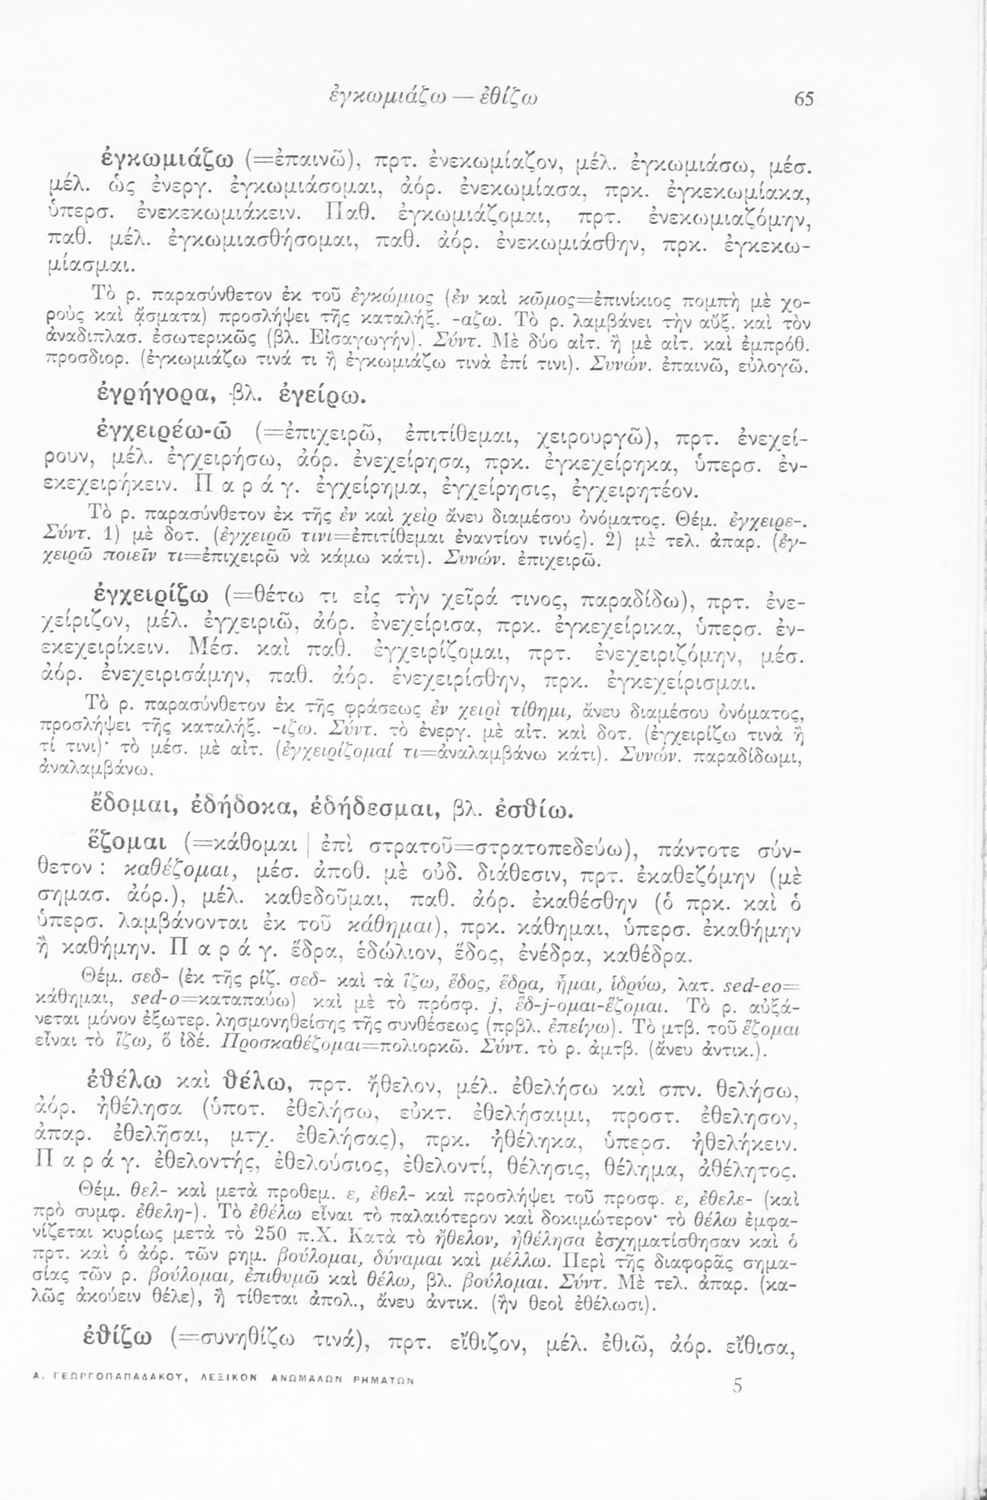 ἐγκωμιάζω — ἐθίζω 65
ἐγκωμιάζω (=ἐπαινῶ), πρτ. ἐνεκωμίαζον, μέλ. ἐγκωμιάσω, μέσ.
μέλ. ὡς ἐνεργ. ἐγκωμιάσομαι, ἀόρ. ἐνεκωμίασα, πρκ. ἐγκεκωμίακα,
ὑπερσ. ἐνεκεκωμιάκειν. Παθ. ἐγκωμιάζομαι, πρτ. ἐνεκωμιαζόμην,
παθ. μέλ. ἐγκωμιασθήσομαι, παθ. ἀόρ. ἐνεκωμιάσθην, πρκ. ἐγκεκω-
μίασμαι.
Τὸ ρ. παρασύνθετον ἐκ τοῦ ἐγκώμιος (ἐν καὶ κῶμος=ἐπινίκιος πομπὴ μὲ χο-
ροὺς καὶ ᾄσματα) προσλήψει τῆς καταλήξ. -αζω. Τὸ ρ. λαμβάνει τὴν αὔξ. καὶ τὸν
ἀναδιπλασ. ἐσωτερικῶς (βλ. Εἰσαγωγήν). Σύντ. Μὲ δύο αἰτ. ἢ μὲ αἰτ. καὶ ἐμπρόθ.
προσδιορ. (ἐγκωμιάζω τινά τι ἢ ἐγκωμιάζω τινὰ ἐπί τινι). Συνών. ἐπαινῶ, εὐλογῶ.
ἐγρήγορα, βλ. ἐγείρω.
ἐγχειρέω-ῶ (=ἐπιχειρῶ, ἐπιτίθεμαι, χειρουργῶ), πρτ. ἐνεχεί-
ρουν, μέλ. ἐγχειρήσω, ἀόρ. ἐνεχείρησα, πρκ. ἐγκεχείρηκα, ὑπερσ. ἐν-
εκεχειρήκειν. Παράγ. ἐγχείρημα, ἐγχείρησις, ἐγχειρητέον.
Τὸ ρ. παρασύνθετον ἐκ τῆς ἐν καὶ χεὶρ ἄνευ διαμέσου ὀνόματος. Θέμ. ἐγχειρε-.
Σύντ. 1) μὲ δοτ. (ἐγχειρῶ τινι=ἐπιτίθεμαι ἐναντίον τινός). 2) μὲ τελ. ἀπαρ. (ἐγ-
χειρῶ ποιεῖν τι=ἐπιχειρῶ νὰ κάμω κάτι). Συνών. ἐπιχειρῶ.
ἐγχειρίζω (=θέτω τι εἰς τὴν χεῖρά τινος, παραδίδω), πρτ. ἐνε-
χείριζον, μέλ. ἐγχειριῶ, ἀόρ. ἐνεχείρισα, πρκ. ἐγκεχείρικα, ὑπερσ. ἐν-
εκεχειρίκειν. Μέσ. καὶ παθ. ἐγχειρίζομαι, πρτ. ἐνεχειριζόμην, μέσ.
ἀόρ. ἐνεχειρισάμην, παθ. ἀόρ. ἐνεχειρίσθην, πρκ. ἐγκεχείρισμαι.
Τὸ ρ. παρασύνθετον ἐκ τῆς φράσεως ἐν χειρὶ τίθημι, ἄνευ διαμέσου ὀνόματος,
προσλήψει τῆς καταλήξ. -ιζω. Σύντ. τὸ ἐνεργ. μὲ αἰτ. καὶ δοτ. (ἐγχειρίζω τινὰ ἤ
τί τινι)· τὸ μέσ. μὲ αἰτ. (ἐγχειρίζομαί τι=ἀναλαμβάνω κάτι). Συνών. παραδίδωμι,
ἀναλαμβάνω.
ἔδομαι, ἐδήδοκα, ἐδήδεσμαι, βλ. ἐσθίω.
ἕζομαι (=κάθομαι | ἐπὶ στρατοῦ=στρατοπεδεύω), πάντοτε σύν-
θετον : καθέζομαι, μέσ. ἀποθ. μὲ οὐδ. διάθεσιν, πρτ. ἐκαθεζόμην (μὲ
σημασ. ἀόρ.), μέλ. καθεδοῦμαι, παθ. ἀόρ. ἐκαθέσθην (ὁ πρκ. καὶ ὁ
ὑπερσ. λαμβάνονται ἐκ τοῦ κάθημαι), πρκ. κάθημαι, ὑπερσ. ἐκαθήμην
ἢ καθήμην. Παράγ. ἕδρα, ἑδώλιον, ἕδος, ἐνέδρα, καθέδρα.
Θέμ. σεδ- (ἐκ τῆς ρίζ. σεδ- καὶ τὰ ἵζω, ἕδος, ἕδρα, ἧμαι, ἱδρύω, λατ. sed-eo=
κάθημαι, sed-o=καταπαύω) καὶ μὲ τὸ πρόσφ. j, ἕδ-j-ομαι-ἕζομαι. Τὸ ρ. αὐξά-
νεται μόνον ἐξωτερ. λησμονηθείσης τῆς συνθέσεως (πρβλ. ἐπείγω). Τὸ μτβ. τοῦ ἕζομαι
εἶναι τὸ ἵζω, ὃ ἰδέ. Προσκαθέζομαι=πολιορκῶ. Σύντ. τὸ ρ. ἀμτβ. (ἄνευ ἀντικ.).
ἐθέλω καὶ θέλω, πρτ. ἤθελον, μέλ. ἐθελήσω καὶ σπν. θελήσω,
ἀόρ. ἠθέλησα (ὑποτ. ἐθελήσω, εὐκτ. ἐθελήσαιμι, προστ. ἐθελησον,
ἀπαρ. ἐθελῆσαι, μτχ. ἐθελήσας), πρκ. ἠθέληκα, ὑπερσ. ἠθελήκειν.
Παράγ. ἐθελοντής, ἐθελούσιος, ἐθελοντί, θέλησις, θέλημα, ἀθέλητος.
Θέμ. θελ- καὶ μετὰ προθεμ. ε, ἐθελ- καὶ προσλήψει τοῦ προσφ. ε, ἐθελε- (καὶ
πρὸ συμφ. ἐθελη-). Τὸ ἐθέλω εἶναι τὸ παλαιότερον καὶ δοκιμώτερον· τὸ θέλω ἐμφα-
νίζεται κυρίως μετὰ τὸ 250 π.Χ. Κατὰ τὸ ἤθελον, ἠθέλησα ἐσχηματίσθησαν καὶ ὁ
πρτ. καὶ ὁ ἀόρ. τῶν ρημ. βούλομαι, δύναμαι καὶ μέλλω. Περὶ τῆς διαφορᾶς σημα-
σίας τῶν ρ. βούλομαι, ἐπιθυμῶ καὶ θέλω, βλ. βούλομαι. Σύντ. Μὲ τελ. ἀπαρ. (κα-
λῶς ἀκούειν θέλε), ἢ τίθεται ἀπολ., ἄνευ ἀντικ. (ἢν θεοὶ ἐθέλωσι).
ἐθίζω (=συνηθίζω τινά), πρτ. εἴθιζον, μέλ. ἐθιῶ, ἀόρ. εἴθισα,
Α. ΓΕΩΡΓΟΠΑΠΑΔΑΚΟΥ, ΛΕΞΙΚΟΝ ΑΝΩΜΑΛΩΝ ΡΗΜΑΤΩΝ 5